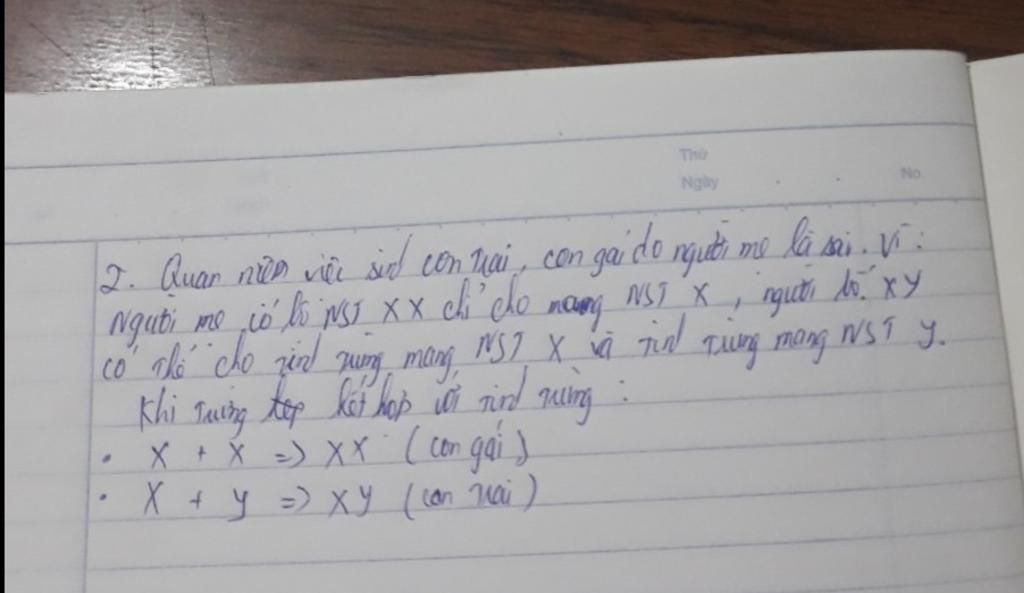 Thứ
Ngày . . No.
2. Quan niệm việc sinh con trai, con gái do người mẹ là sai. Vì:
Người mẹ có bộ NST XX chỉ cho mang NST X, người bố XY
có thể cho tinh trùng mang NST X và tinh trùng mang NST Y.
Khi trứng kết hợp với tinh trùng:
• X + X => XX (con gái)
• X + Y => XY (con trai)